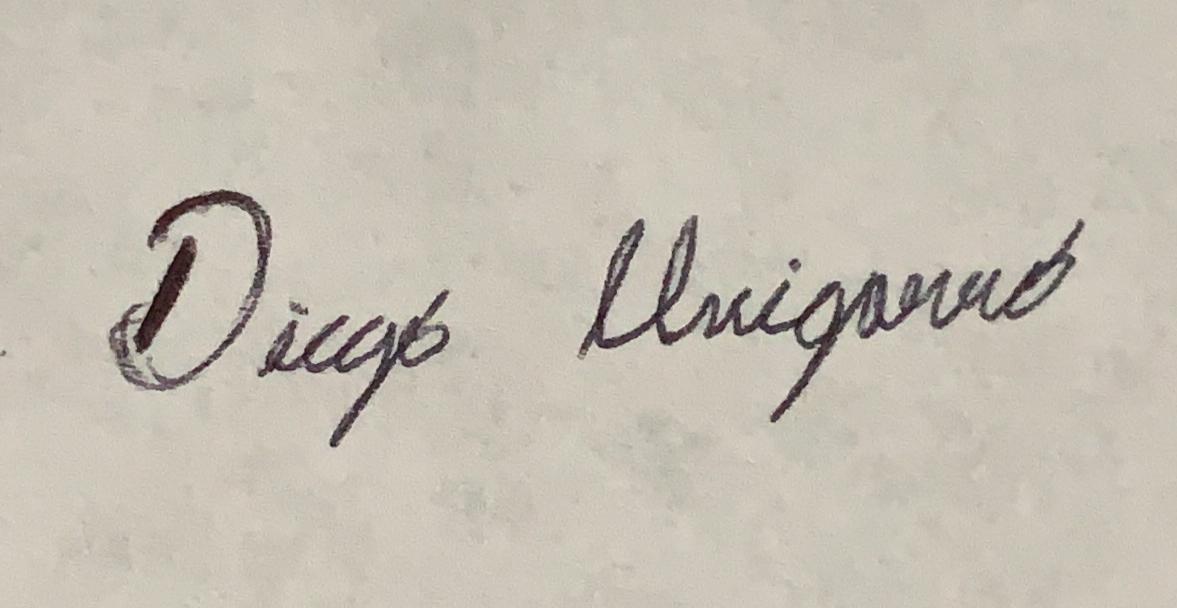 Diego Unigarro